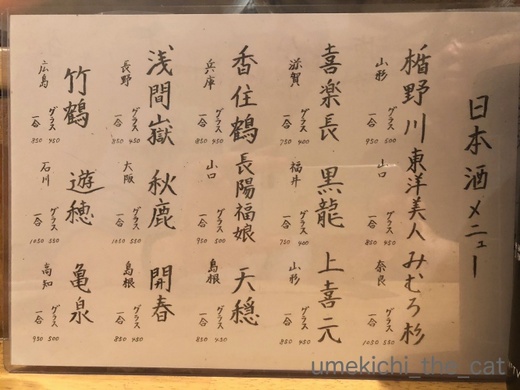 日本酒メニュー
楯野川
山形
グラス 500
一合 950
東洋美人
山口
グラス 450
一合 850
みむろ杉
奈良
グラス 550
一合 1050
喜楽長
滋賀
グラス 400
一合 750
黒龍
福井
グラス 400
一合 750
上喜元
山形
グラス 450
一合 850
香住鶴
兵庫
グラス 450
一合 850
長陽福娘
山口
グラス 500
一合 950
天穏
島根
グラス 500
一合 950
浅間嶽
長野
グラス 450
一合 850
秋鹿
大阪
グラス 550
一合 1050
開春
島根
グラス 450
一合 850
竹鶴
広島
グラス 450
一合 850
遊穂
石川
グラス 550
一合 1050
亀泉
高知
グラス 500
一合 950
umekichi_the_cat